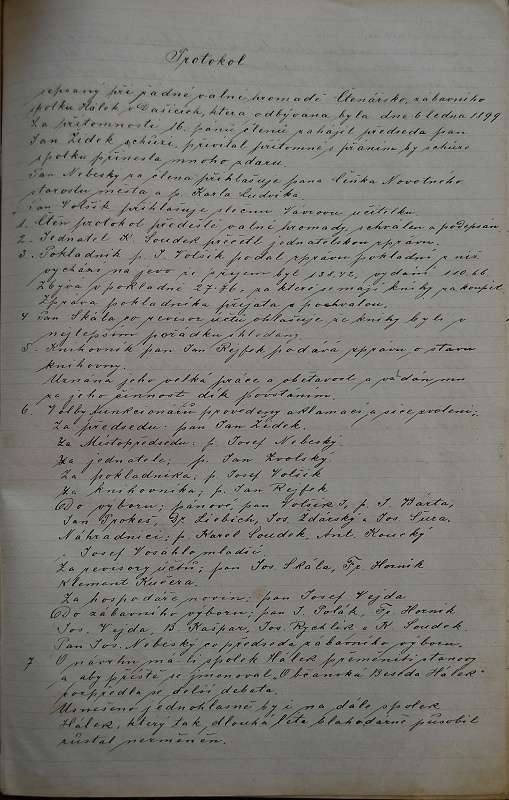 Protokol
sepsaný při řádné valné hromadě Čtenársko, zábavního
spolku Hálek v Dašicích, která odbývána byla dne 6 ledna 1899
Za přítomnosti 16. panů členů zahájil předseda pan
Jan Žídek schůzi, přivítal přítomné s přáním by schůze
spolku přinesla mnoho zdaru.
Pan Nebeský za člena přihlašuje pana Čeňka Novotného
starostu města a p. Karla Ludvíka.
Pan Volšík přihlašuje slečnu Vávrovu učitelku.
1. Čten protokol předešlé valné hromady, schválen a podepsán
2. Jednatel K. Soudek přečetl jednatelskou zprávu.
3. Pokladník p. J. Volšík podal zprávu pokladní z níž
vychází na jevo že příjem byl 138.42, vydání 110.66
Zbývá v pokladně 27.76, za které se mají knihy zakoupit
Zpráva pokladníka přijata s pochvalou.
4 Pan Skála co revisor účtů ohlašuje že knihy byly v
nejlepším pořádku shledány
5. Knihovník pan Jan Rejfek podává zprávu o stavu
knihovny.
Uznána jeho velká práce a obětavost a vzdán mu
za jeho činnost dík povstáním.
6. Volby funkcionářů provedeny aklamací, a sice zvoleni;
Za předsedu: pan Jan Žídek.
Za Místopředsedu: p. Josef Nebeský.
Za jednatele; p. Jan Zvolský
Za pokladníka; p. Josef Volšík
Za knihovníka; p. Jan Rejfek
Do výboru; pánové, pan Volšík J, p. J. Bárta,
Jan Prokeš, Liebich, Jos. Ždárský a Jos. Šuca.
Náhradníci; p. Karel Soudek, Ant. Kouský
, Josef Vosáhlo mladší
Za revisory účtů; pan Jos. Skála, Fr. Horník
Klement Kučera.
Za hospodáře novin: pan Josef Vejda
Do zábavního výboru; pan J. Polák, Fr. Horník
Jos. Vejda, B. Kašpar, Jos. Rychlík a K. Soudek.
Pan Jos. Nebeský co předseda zábavního výboru.
7 O návrhu má-li spolek Hálek přeměniti stanovy
a aby příště se jmenoval „Občanská Beseda Hálek"
rozpředla se delší debata.
Usnešeno jednohlasně by i na dále spolek
Hálek, který tak dlouhá léta blahodárně působil
zůstal nezměněn.